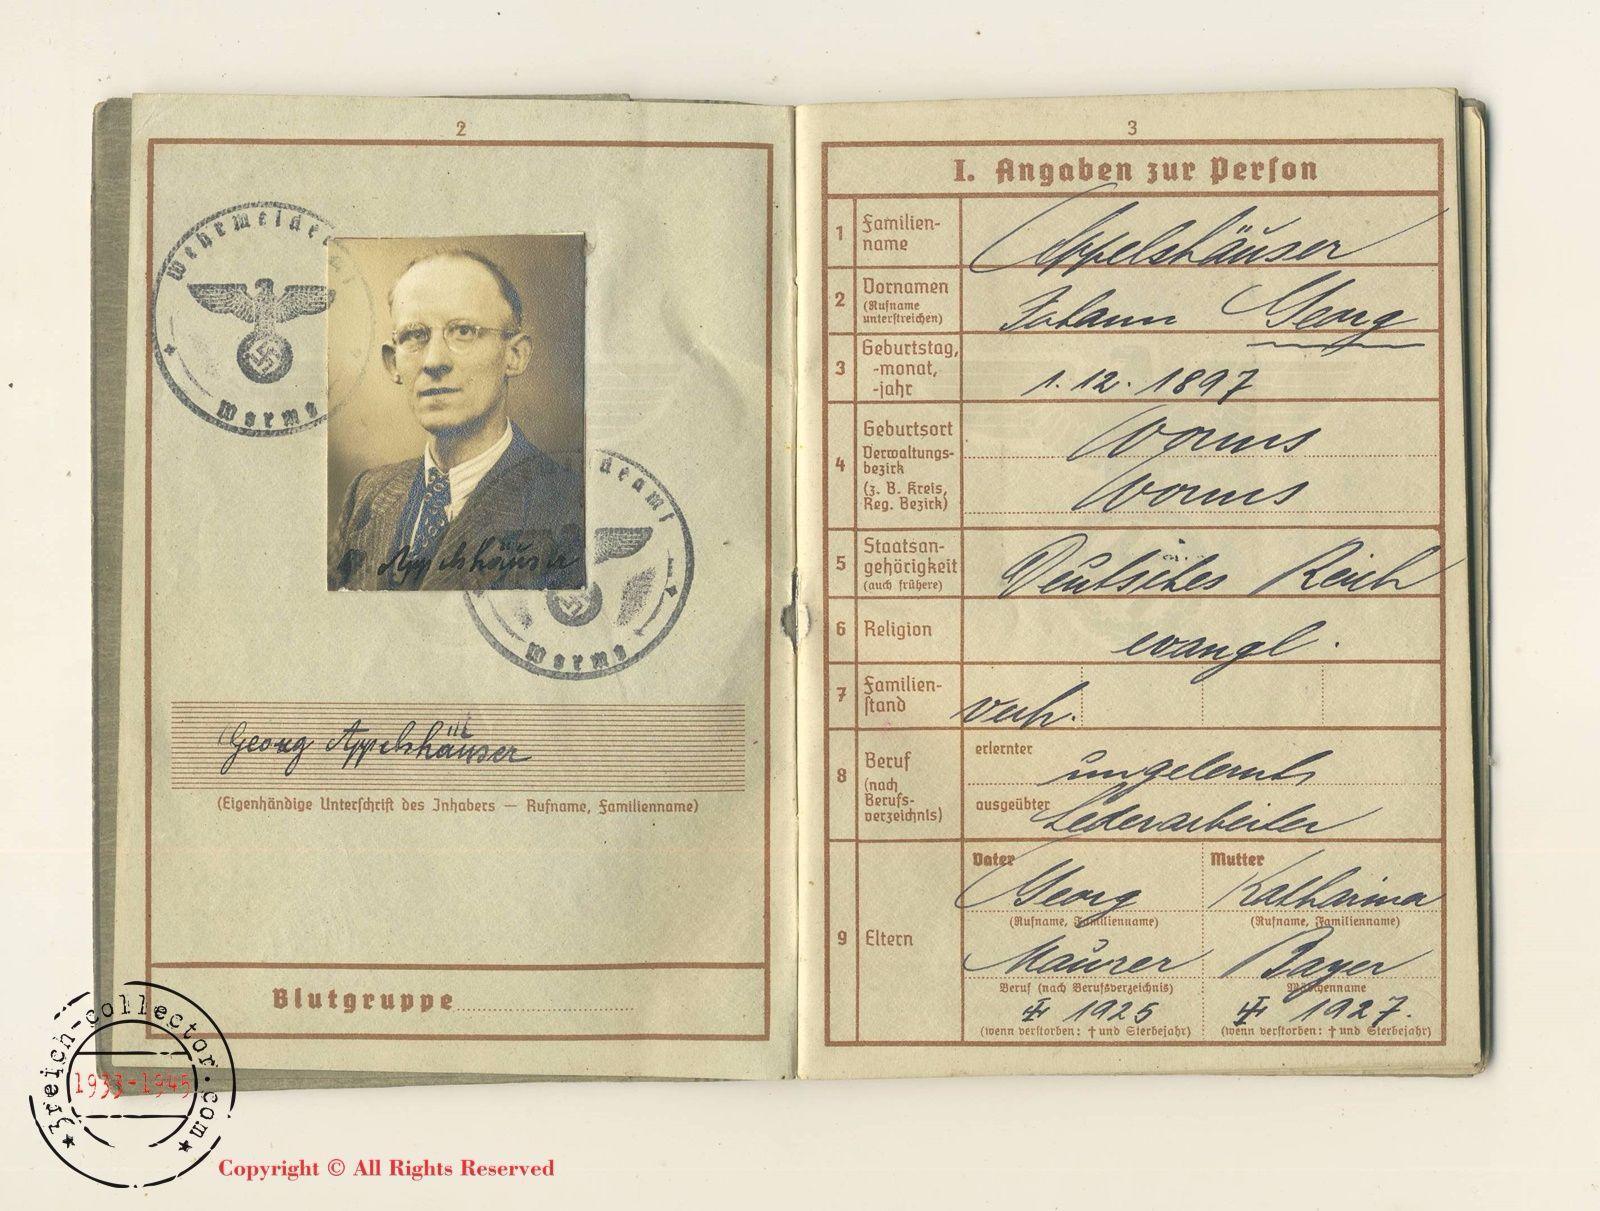 2
Wehrmeldeamt
Worms
Appelshäuser
Wehrmeldeamt
Worms
Georg Appelshäuser
(Eigenhändige Unterschrift des Inhabers — Rufname, Familienname)
Blutgruppe
3
I. Angaben zur Person
1 Familien-
name
Appelshäuser
2 Vornamen
(Rufname
unterstreichen)
Johann Georg
3 Geburtstag,
-monat,
-jahr
1.12.1897
4 Geburtsort
Verwaltungs-
bezirk
(z. B. Kreis,
Reg. Bezirk)
Worms
Worms
5 Staatsan-
gehörigkeit
(auch frühere)
Deutsches Reich
6 Religion
evangl.
7 Familien-
stand
verh.
8 Beruf
(nach
Berufs-
verzeichnis)
erlernter ungelernt
ausgeübter Lederarbeiter
9 Eltern
Vater
Georg
(Rufname, Familienname)
Maurer
Beruf (nach Berufsverzeichnis)
1925
(wenn verstorben: † und Sterbejahr)
Mutter
Katharina
(Rufname, Familienname)
Bayer
Mädchenname
1927.
(wenn verstorben: † und Sterbejahr)
3reich-collector.com
1933-1945
Copyright © All Rights Reserved